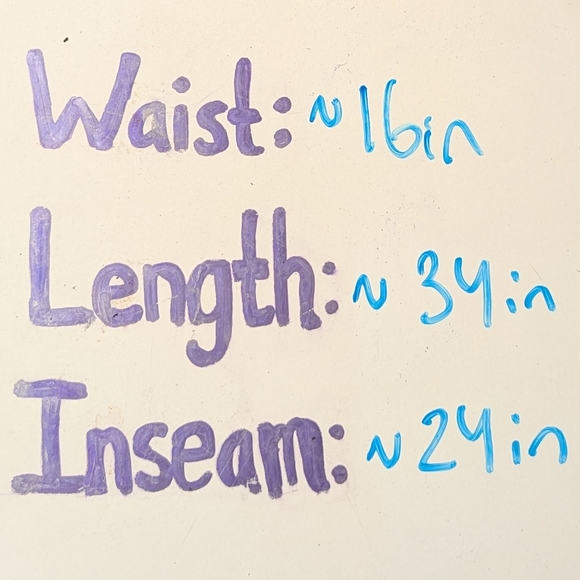 Waist: ~16in
Length: ~34in
Inseam: ~24in